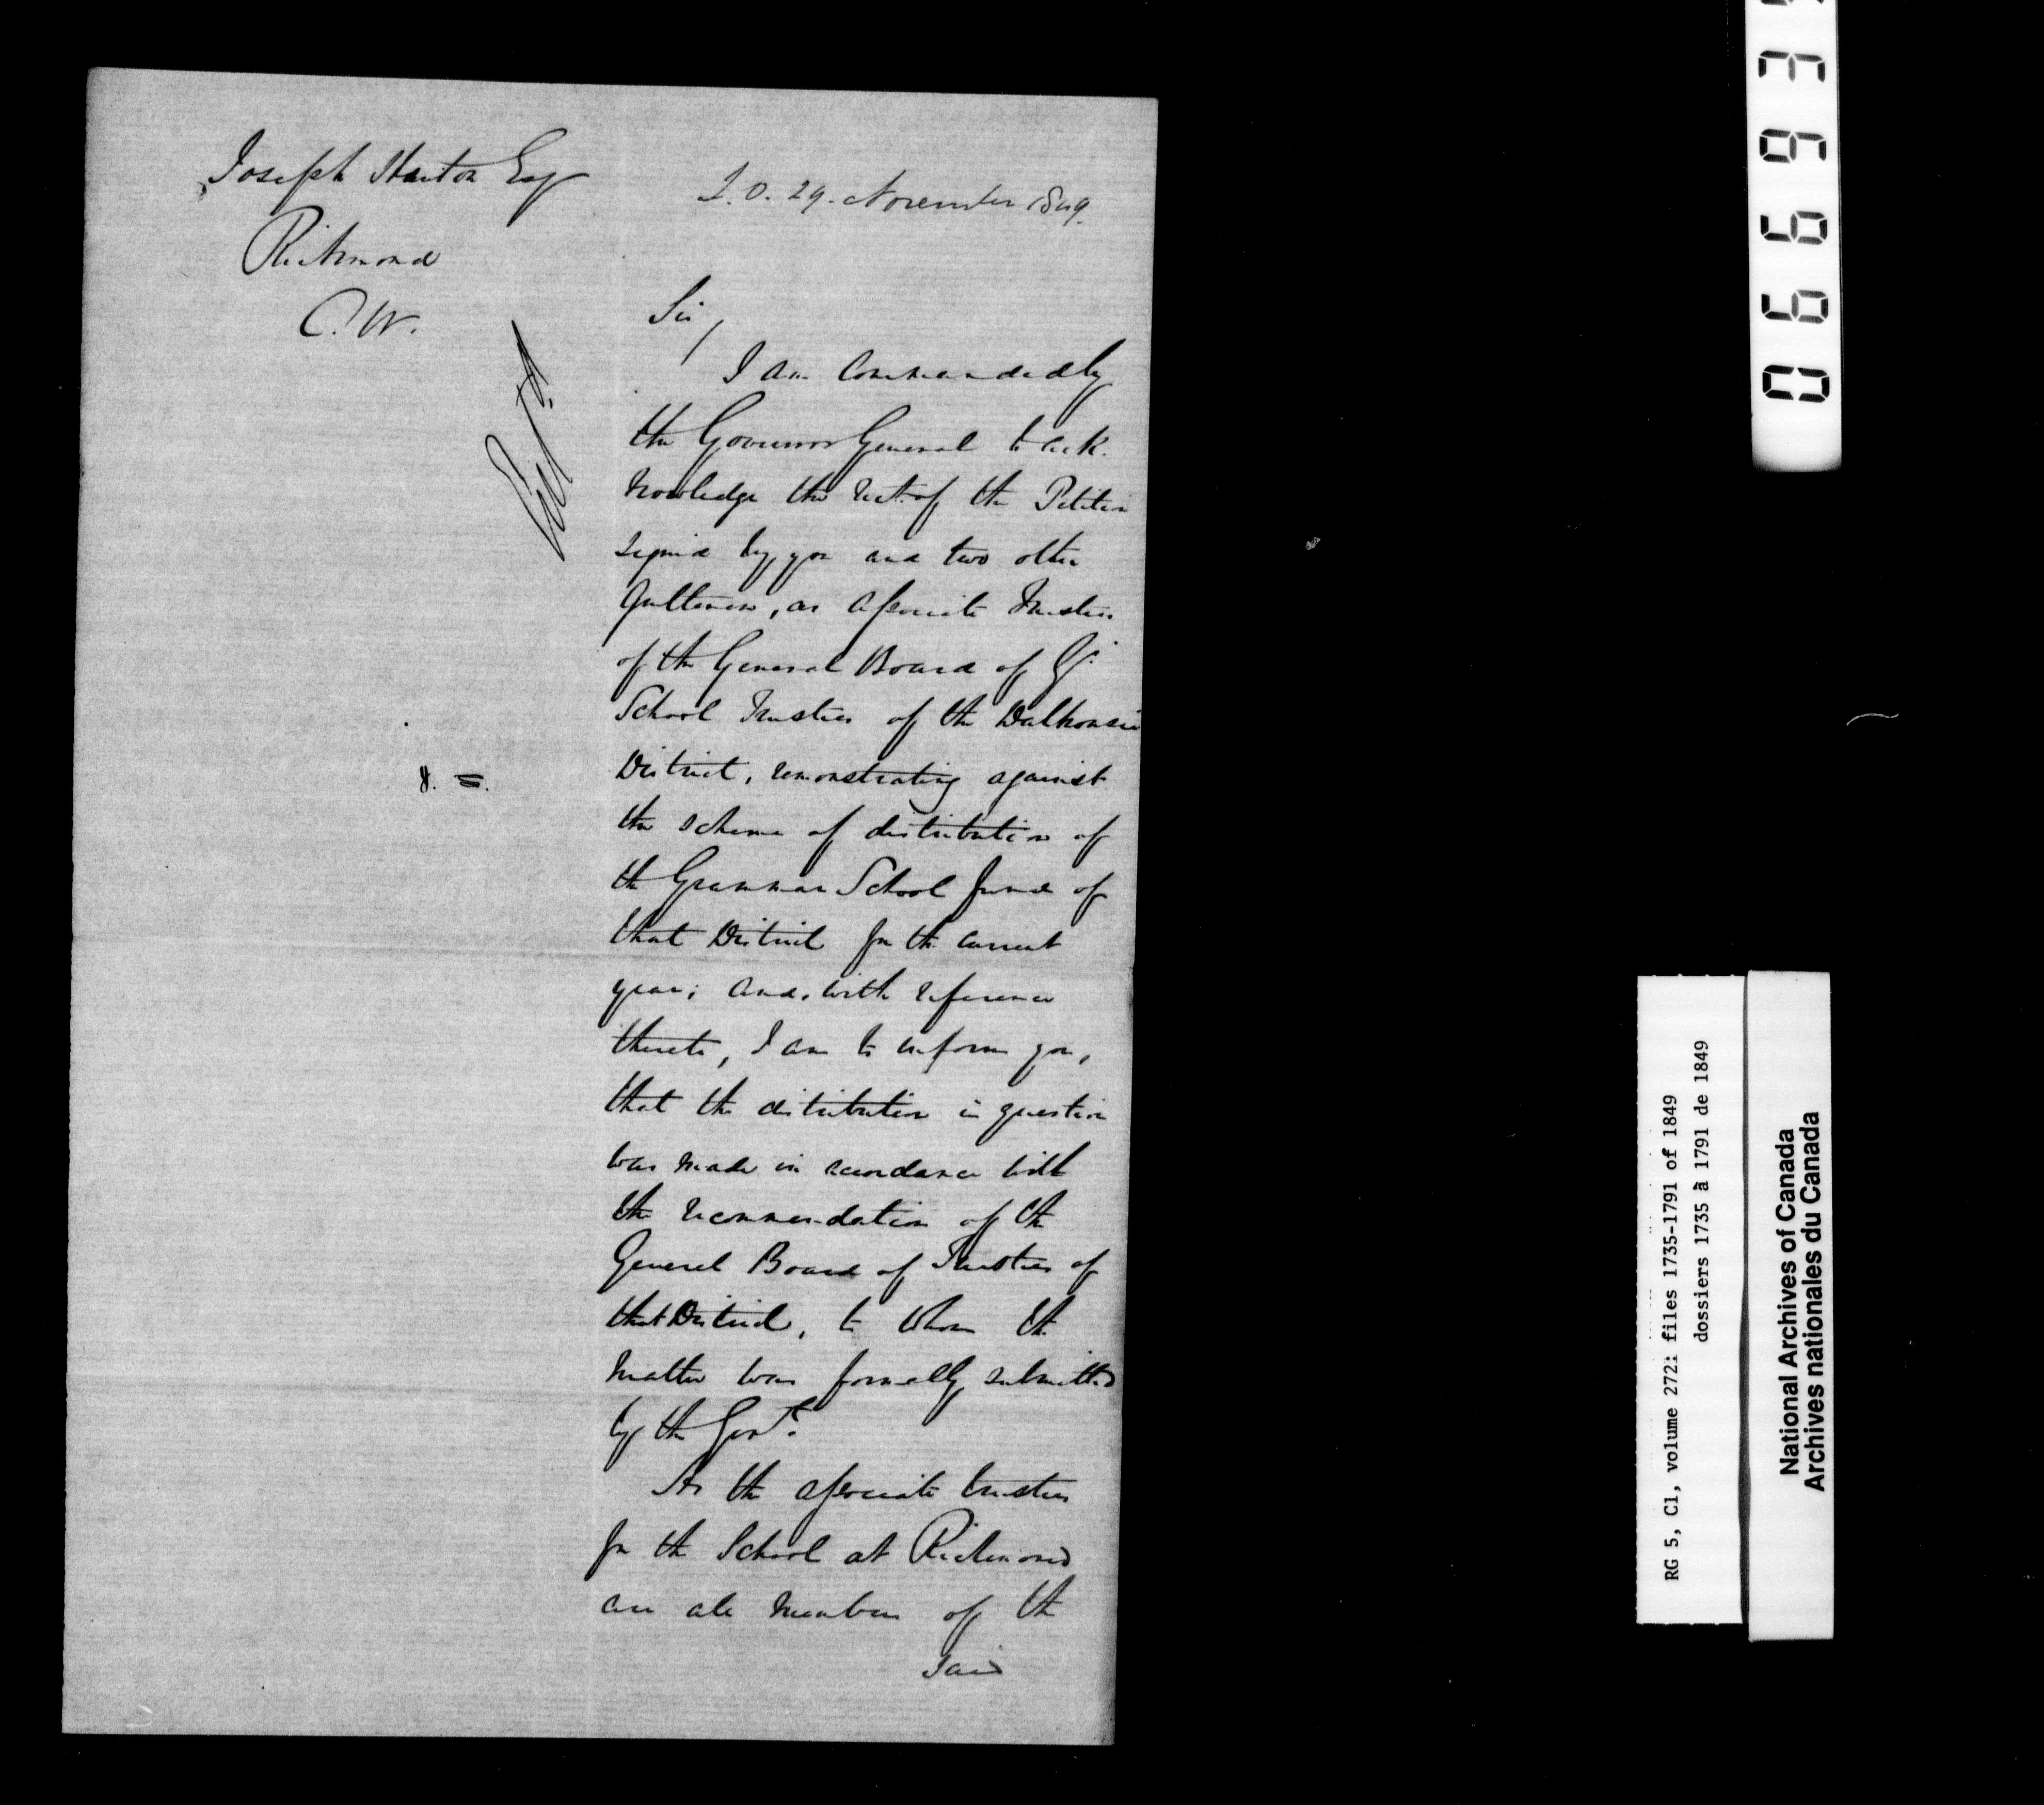 Joseph Hinton Esq
Richmond
C.W.
S.O. 29. November 1849.
Sir,
I am Commanded by
the Governor General to ack-
nowledge the rect. of the Petition
signed by you and two other
gentlemen, as Associate Trustees
of the General Board of Gr.
School Trustees of the Dalhousie
District, remonstrating against
the scheme of distribution of
the Grammar School fund of
that District for the current
year; and, with reference
thereto, I am to inform you,
that the distribution in question
was made in accordance with
the recommendation of the
General Board of Trustees of
that District, to whom the
matter was formally submitted
by the Govt.
As the associate trustees
for the School at Richmond
are also members of the
said
06693
RG 5, C1, volume 272: files 1735-1791 of 1849
dossiers 1735 à 1791 de 1849
National Archives of Canada
Archives nationales du Canada